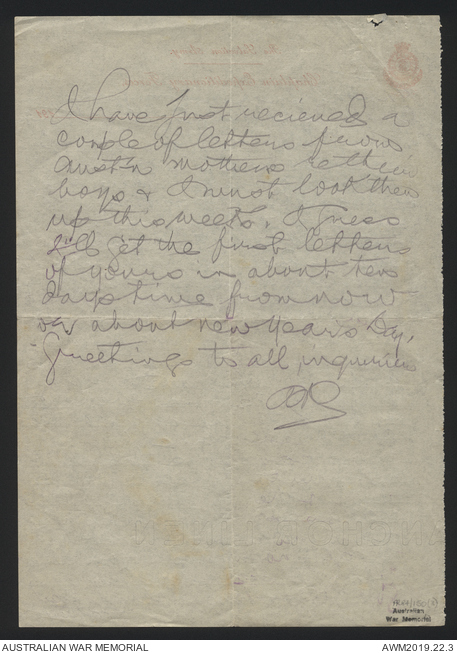 I have just recieved a
couple of letters from
Austn mothers re their
boys & I must look them
up this week. I guess
I'll get the first letters
of yours in about ten
days time from now
or about new year's Day.
Greetings to all inquiries
Australian
War Memorial
AUSTRALIAN WAR MEMORIAL
AWM2019.22.3